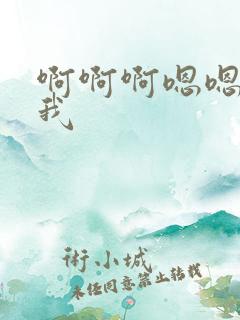 啊啊啊嗯嗯
我
術小城
未经同意禁止转载